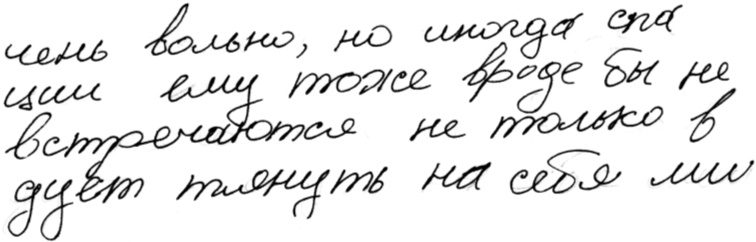 чень вольно, но иногда спа
ции ему тоже вроде бы не
встречаются не только в
дует тянуть на себя ми